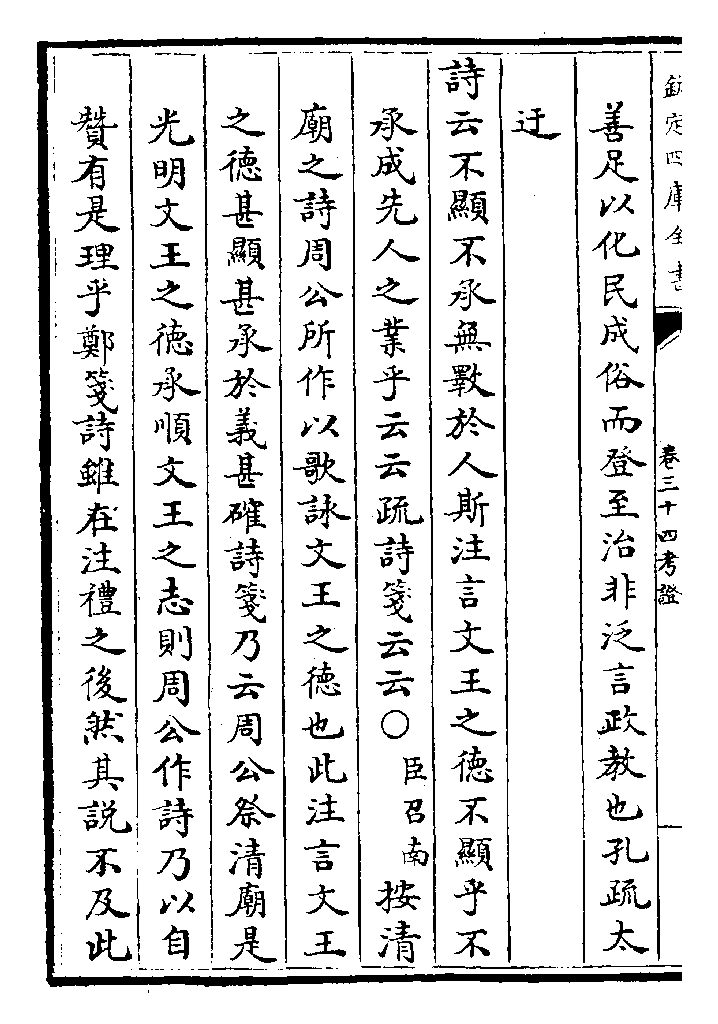 欽定四庫全書
卷三十四考證
善足以化民成俗而登至治非泛言政教也孔疏太
迂
詩云不顯不承無斁於人斯注言文王之德不顯乎不
承成先人之業乎云云疏詩箋云云○臣召南按清
廟之詩周公所作以歌詠文王之德也此注言文王
之德甚顯甚承於義甚確詩箋乃云周公祭清廟是
光明文王之德承順文王之志則周公作詩乃以自
贊有是理乎鄭箋詩雖在注禮之後然其說不及此